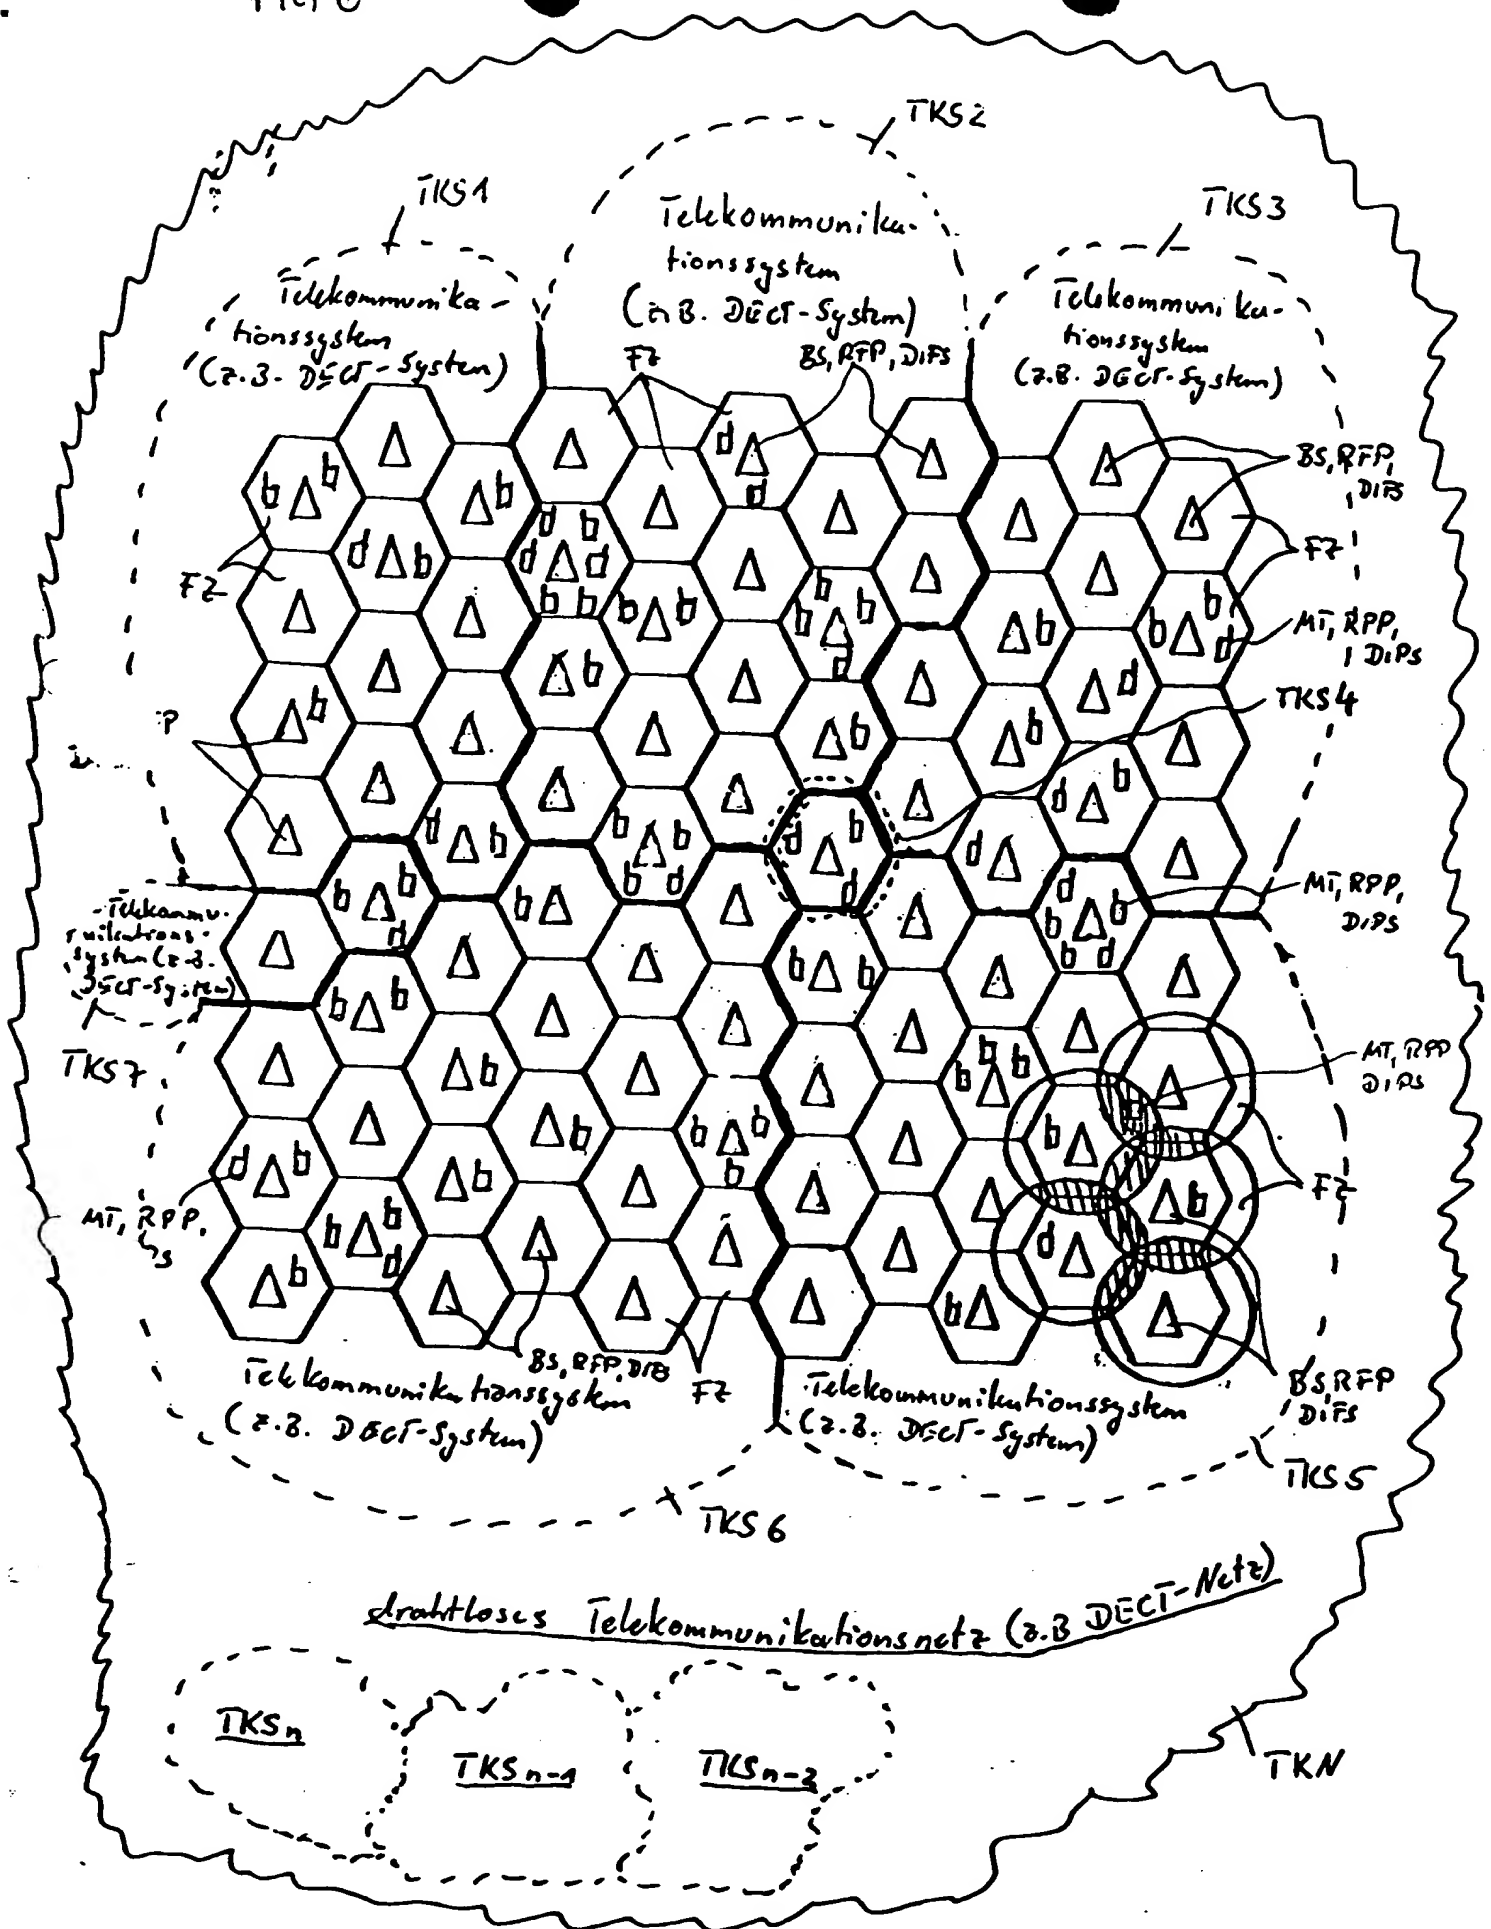 TKS2
TKS1
TKS3
Telekommunika-
tionssystem
(z.B. DECT-System)
Telekommunika-
tionssystem
(z.B. DECT-System)
Telekommunika-
tionssystem
(z.B. DECT-System)
FZ
BS, RFP, DIFS
BS, RFP,
DIFS
FZ
FZ
MT, RPP,
DIPS
TKS4
P
MT, RPP,
DIPS
Telekommu-
nikations-
system (z.B.
DECT-System)
TKS7
MT, RPP
DIPS
FZ
MT, RPP,
S
BS, RFP, DIFS
FZ
BS, RFP
DIFS
Telekommunikationssystem
(z.B. DECT-System)
Telekommunikationssystem
(z.B. DECT-System)
TKS5
TKS6
drahtloses Telekommunikationsnetz (z.B DECT-Netz)
TKSn
TKSn-1
TKSn-2
TKN